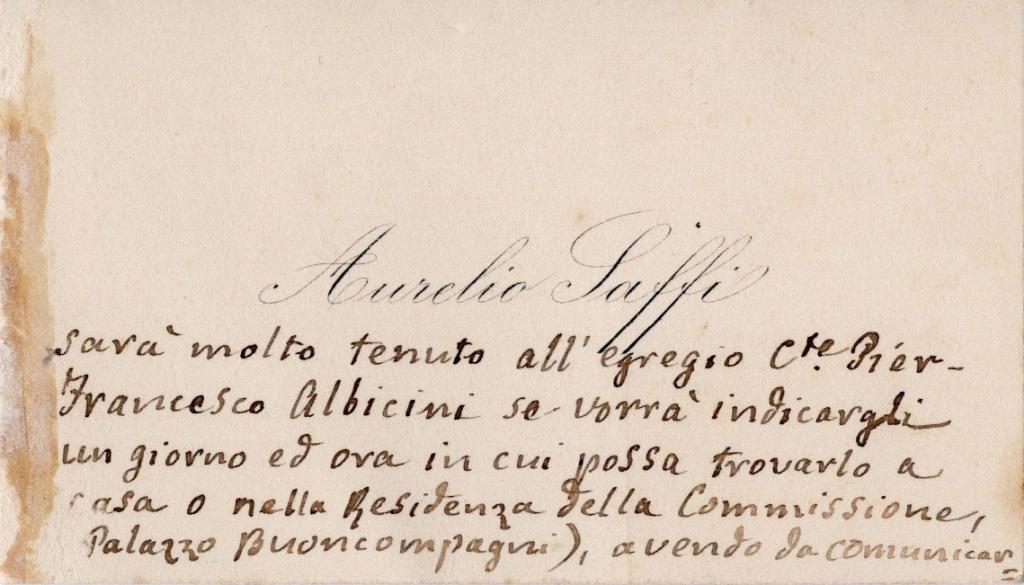 Aurelio Saffi
sarà molto tenuto all'egregio Cte. Pier-
Francesco Albicini se vorrà indicargli
un giorno ed ora in cui possa trovarlo a
casa o nella Residenza della Commissione,
Palazzo Buoncompagni), avendo da comunicar=